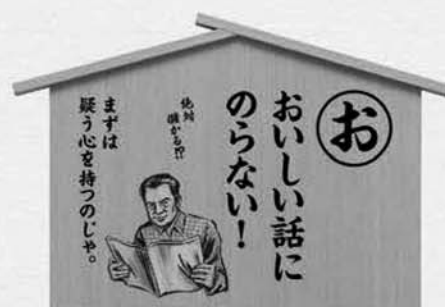 お
おいしい話に
のらない！
絶対
儲かる!?
まずは
疑う心を持つのじゃ。